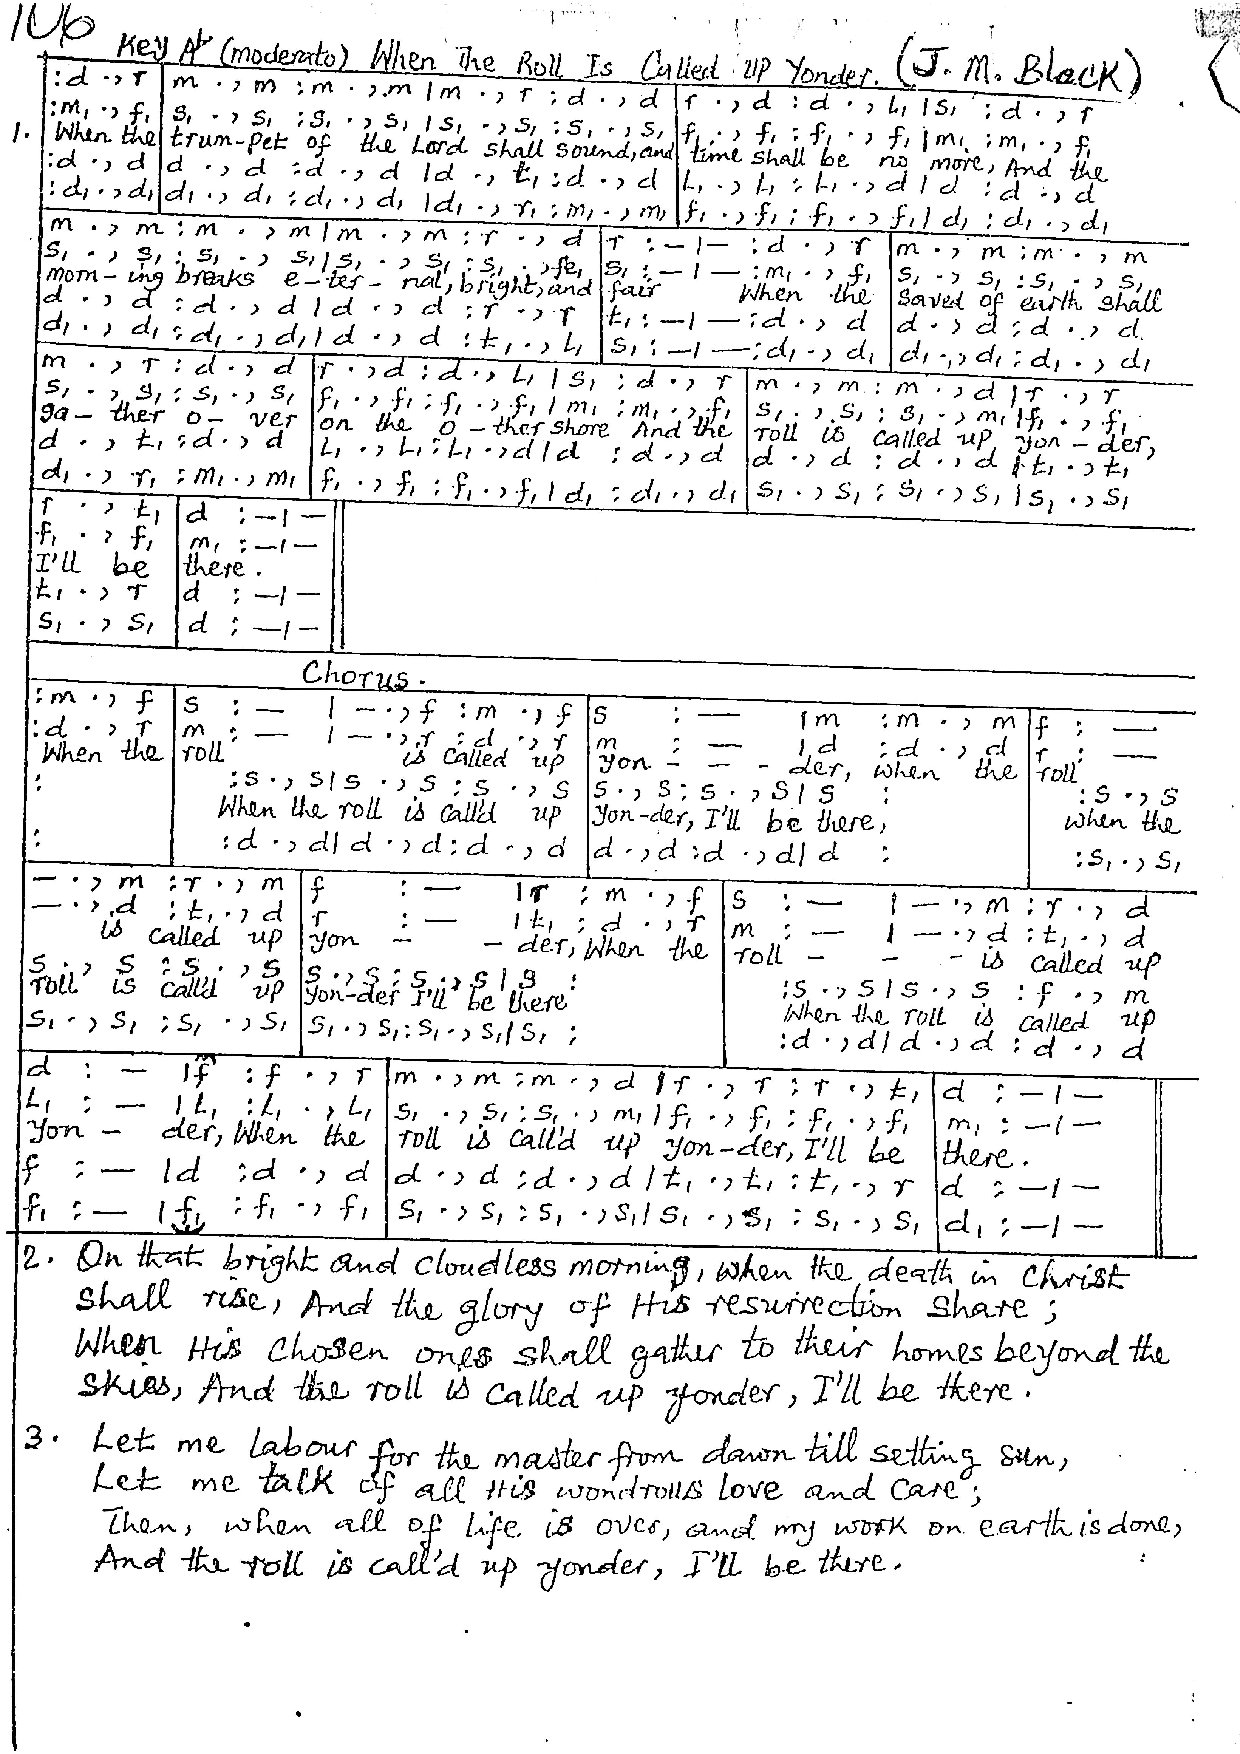 106
Key A♭ (moderato) When The Roll Is Called Up Yonder. (J. M. Black)
:d .,r | m .,m :m .,m | m .,r :d .,d | r .,d :d .,l₁ | s₁ :d .,r
:m₁ .,f₁ | s₁ .,s₁ :s₁ .,s₁ | s₁ .,s₁ :s₁ .,s₁ | f₁ .,f₁ :f₁ .,f₁ | m₁ :m₁ .,f₁
1. When the trum-pet of the Lord shall sound, and time shall be no more, And the
:d .,d | d .,d :d .,d | d .,t₁ :d .,d | l₁ .,l₁ :l₁ .,d | d :d .,d
:d₁ .,d₁ | d₁ .,d₁ :d₁ .,d₁ | d₁ .,r₁ :m₁ .,m₁ | f₁ .,f₁ :f₁ .,f₁ | d₁ :d₁ .,d₁
m .,m :m .,m | m .,m :r .,d | r :-|- :d .,r | m .,m :m .,m
s₁ .,s₁ :s₁ .,s₁ | s₁ .,s₁ :s₁ .,fe₁ | s₁ :-|- :m₁ .,f₁ | s₁ .,s₁ :s₁ .,s₁
morn-ing breaks e-ter-nal, bright, and fair When the saved of earth shall
d .,d :d .,d | d .,d :r .,r | t₁ :-|- :d .,d | d .,d :d .,d
d₁ .,d₁ :d₁ .,d₁ | d .,d :t₁ .,l₁ | s₁ :-|- :d₁ .,d₁ | d₁ .,d₁ :d₁ .,d₁
m .,r :d .,d | r .,d :d .,l₁ | s₁ :d .,r | m .,m :m .,d | r .,r
s₁ .,s₁ :s₁ .,s₁ | f₁ .,f₁ :f₁ .,f₁ | m₁ :m₁ .,f₁ | s₁ .,s₁ :s₁ .,m₁ | f₁ .,f₁
ga-ther o-ver on the o-ther shore And the roll is called up yon-der,
d .,t₁ :d .,d | l₁ .,l₁ :l₁ .,d | d :d .,d | d .,d :d .,d | t₁ .,t₁
d₁ .,r₁ :m₁ .,m₁ | f₁ .,f₁ :f₁ .,f₁ | d₁ :d₁ .,d₁ | s₁ .,s₁ :s₁ .,s₁ | s₁ .,s₁
r .,t₁ | d :-|-
f₁ .,f₁ | m₁ :-|-
I'll be there.
t₁ .,r | d :-|-
s₁ .,s₁ | d :-|-
Chorus.
:m .,f | s :- | -.,f :m .,f | s :- | m :m .,m | f :-
:d .,r | m :- | -.,r :d .,r | m :- | d :d .,d | r :-
When the roll is called up yon - - - der, when the roll
: | :s .,s | s .,s :s .,s | s .,s :s .,s | s : | :s .,s
When the roll is call'd up yon-der, I'll be there, when the
: | :d .,d | d .,d :d .,d | d .,d :d .,d | d : | :s₁ .,s₁
-.,m :r .,m | f :- | r :m .,f | s :- | -.,m :r .,d
-.,d :t₁ .,d | r :- | t₁ :d .,r | m :- | -.,d :t₁ .,d
is called up yon - - der, When the roll - - - is called up
s .,s :s .,s | s .,s :s .,s | s : | :s .,s | s .,s :f .,m
roll is call'd up yon-der I'll be there When the roll is called up
s₁ .,s₁ :s₁ .,s₁ | s₁ .,s₁ :s₁ .,s₁ | s₁ : | :d .,d | d .,d :d .,d
d :- | f :f .,r | m .,m :m .,d | r .,r :r .,t₁ | d :-|-
l₁ :- | l₁ :l₁ .,l₁ | s₁ .,s₁ :s₁ .,m₁ | f₁ .,f₁ :f₁ .,f₁ | m₁ :-|-
yon - der, When the roll is call'd up yon-der, I'll be there.
f :- | d :d .,d | d .,d :d .,d | t₁ .,t₁ :t₁ .,r | d :-|-
f₁ :- | f₁ :f₁ .,f₁ | s₁ .,s₁ :s₁ .,s₁ | s₁ .,s₁ :s₁ .,s₁ | d₁ :-|-
2. On that bright and cloudless morning, when the death in Christ
shall rise, And the glory of His resurrection share ;
When His chosen ones shall gather to their homes beyond the
skies, And the roll is called up yonder, I'll be there.
3. Let me labour for the master from dawn till setting sun,
Let me talk of all His wondrous love and care ;
Then, when all of life is over, and my work on earth is done,
And the roll is call'd up yonder, I'll be there.